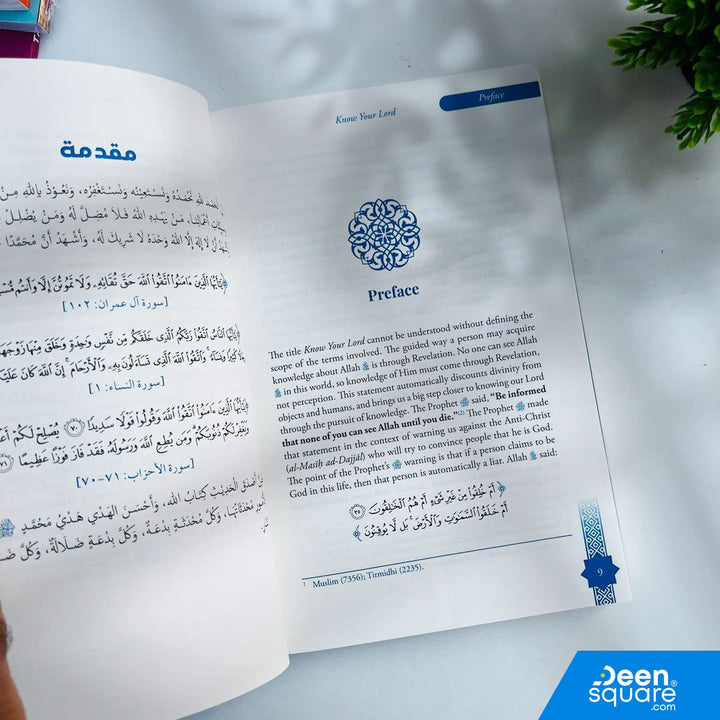 مقدمة
لِلَّهِ نَحْمَدُهُ وَنَسْتَعِينُهُ وَنَسْتَغْفِرُهُ، وَنَعُوذُ بِاللهِ مِنْ
أَعْمَالِنَا، مَنْ يَهْدِهِ اللهُ فَلَا مُضِلَّ لَهُ وَمَنْ يُضْلِلْ
أَنْ لَا إِلَهَ إِلَّا اللهُ وَحْدَهُ لَا شَرِيكَ لَهُ، وَأَشْهَدُ أَنَّ مُحَمَّدًا
﴿يَٰٓأَيُّهَا ٱلَّذِينَ ءَامَنُوا۟ ٱتَّقُوا۟ ٱللَّهَ حَقَّ تُقَاتِهِۦ وَلَا تَمُوتُنَّ إِلَّا وَأَنتُم
[سورة آل عمران: ١٠٢]
﴿يَٰٓأَيُّهَا ٱلنَّاسُ ٱتَّقُوا۟ رَبَّكُمُ ٱلَّذِى خَلَقَكُم مِّن نَّفْسٍ وَٰحِدَةٍ وَخَلَقَ مِنْهَا زَوْجَهَا
كَثِيرًا وَنِسَآءً ۚ وَٱتَّقُوا۟ ٱللَّهَ ٱلَّذِى تَسَآءَلُونَ بِهِۦ وَٱلْأَرْحَامَ ۚ إِنَّ ٱللَّهَ كَانَ
[سورة النساء: ١]
﴿يَٰٓأَيُّهَا ٱلَّذِينَ ءَامَنُوا۟ ٱتَّقُوا۟ ٱللَّهَ وَقُولُوا۟ قَوْلًا سَدِيدًا ٧٠ يُصْلِحْ لَكُمْ
وَيَغْفِرْ لَكُمْ ذُنُوبَكُمْ ۗ وَمَن يُطِعِ ٱللَّهَ وَرَسُولَهُۥ فَقَدْ فَازَ فَوْزًا عَظِيمًا ٧١
[سورة الأحزاب: ٧١-٧٠]
أَصْدَقَ الْحَدِيثِ كِتَابُ اللهِ، وَأَحْسَنَ الْهَدْيِ هَدْيُ مُحَمَّدٍ ﷺ
مُحْدَثَاتُهَا، وَكُلَّ مُحْدَثَةٍ بِدْعَةٌ، وَكُلَّ بِدْعَةٍ ضَلَالَةٌ، وَكُلَّ
Know Your Lord
Preface
Preface
The title Know Your Lord cannot be understood without defining the
scope of the terms involved. The guided way a person may acquire
knowledge about Allah ﷻ is through Revelation. No one can see Allah
ﷻ in this world, so knowledge of Him must come through Revelation,
not perception. This statement automatically discounts divinity from
objects and humans, and brings us a big step closer to knowing our Lord
through the pursuit of knowledge. The Prophet ﷺ said, “Be informed
that none of you can see Allah until you die.”(2) The Prophet ﷺ made
that statement in the context of warning us against the Anti-Christ
(al-Masīḥ ad-Dajjāl) who will try to convince people that he is God.
The point of the Prophet’s ﷺ warning is that if a person claims to be
God in this life, then that person is automatically a liar. Allah ﷻ said:
﴿أَمْ خُلِقُوا۟ مِنْ غَيْرِ شَىْءٍ أَمْ هُمُ ٱلْخَٰلِقُونَ ٣٥
أَمْ خَلَقُوا۟ ٱلسَّمَٰوَٰتِ وَٱلْأَرْضَ ۚ بَل لَّا يُوقِنُونَ﴾
2 Muslim (7356); Tirmidhi (2235).
9
Deen
square®
.com